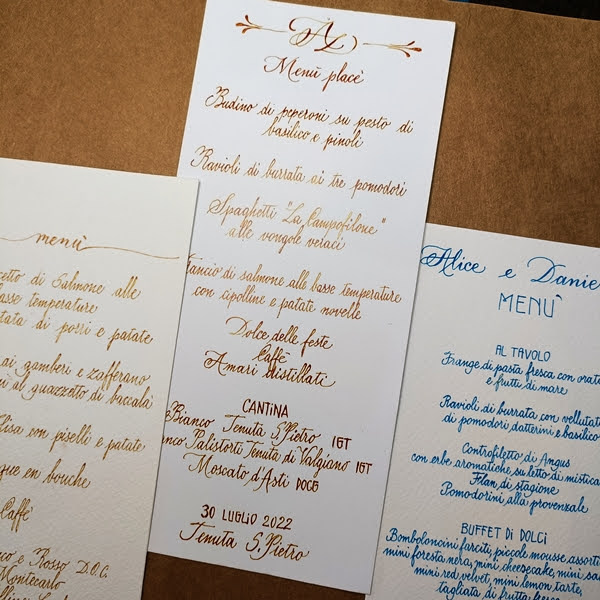 menù
di Salmone alle
basse temperature
di porri e patate
ai gamberi e zafferano
al guazzetto di baccalà
con piselli e patate
en bouche
Caffè
e Rosso D.O.C.
Montecarlo
AL
Menù placè
Budino di peperoni su pesto di
basilico e pinoli
Ravioli di burrata ai tre pomodori
Spaghetti "La Campofilone"
alle vongole veraci
Trancio di salmone alle basse temperature
con cipolline e patate novelle
Dolce delle feste
Caffè
Amari distillati
CANTINA
Bianco Tenuta S.Pietro IGT
Palistorti Tenuta di Valgiano IGT
Moscato d'Asti DOCG
30 LUGLIO 2022
Tenuta S.Pietro
Alice e Danie
MENÙ
AL TAVOLO
Frange di pasta fresca con orata
e frutti di mare
Ravioli di burrata con vellutata
di pomodori datterini e basilico
Controfiletto di Angus
con erbe aromatiche su letto di mistica
Flan di stagione
Pomodorini alla provenzale
BUFFET DI DOLCI
Bomboloncini farciti, piccole mousse assorti
mini foresta nera, mini cheesecake, mini
mini red velvet, mini lemon tarte,
tagliata di frutta fresca